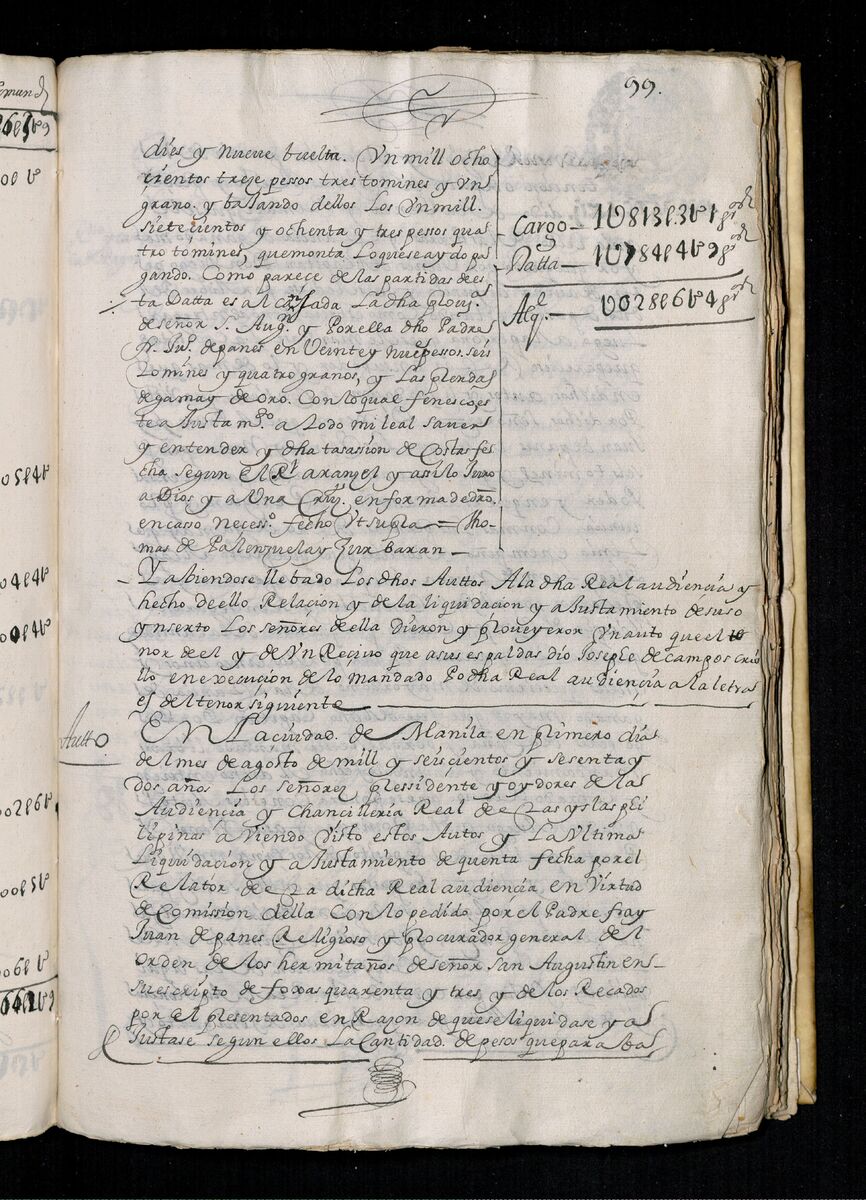 99.
dies y nueve buelta. Yn mill ocho
cientos treze pessos tres tomines y Yn
grano. y bajando dellos Los Yn mill.
siete cientos y ochenta y tres pessos qua
tro tomines, quemonta Loqueseaydo pa
gando. Como parece de las partidas dees
ta Datta es alcansada La dha prouy.ª
de señor S. Aug.n y Porella dho Padre
fr. Ju.º depanes en Veinte y nuepessos. seis
tomines y quatro granos, y Las prendas
degama y de oro. Con lo qual fenesco es
te aJustam.to a todo mi leal saver
y entender y dha tasassion de Costas fe
cha segun el R.l aranzel y assi lo Juro
a Dios y a Una Cruz. en forma de dro.
en casso neces.o fecho Vt supra = Tho-
mas de Palenzuela y Zurbaran —
Cargo — 1U813p.3t.1gr.
Datta — 1U784p4t.9gr.
Alq.e — U028p6t.4gr.
Y abiendose llebado Los dhos Auttos A la dha Real audiencia y
hecho de ello Relacion y de la liquidacion y aJustamiento de suso
ynserto Los señores de ella Dieron y proueyeron Yn auto que el te
nor de el y de Yn Recivo que a sus espaldas dio Josephe de campos criō
llo en execucion de lo mandado Po dha Real audiencia a la letra
es del tenor siguiente
Autto
EN La ciudad. de Manila en primero dia
del mes de agosto de mill y seiscientos y sesenta y
dos años Los señores pressidente y oydores de la
Audiencia y Chancilleria Real de Las yslas phi
lipinas aViendo Visto estos Autos y La Vltima
Liquidacion y aJustamiento de quenta fecha por el
Relator de La dicha Real audiencia en Virtud
de Comission della Con lo pedido por el Padre fray
Juan de panes Religioso y procurador general del
Orden de los hermitaños de señor san Augustin en
su escripto de foxas quarenta y tres y de los Recados
por el presentados en Razon de que se liquidase y a
Justase segun ellos La Cantidad. de pesos que para ba